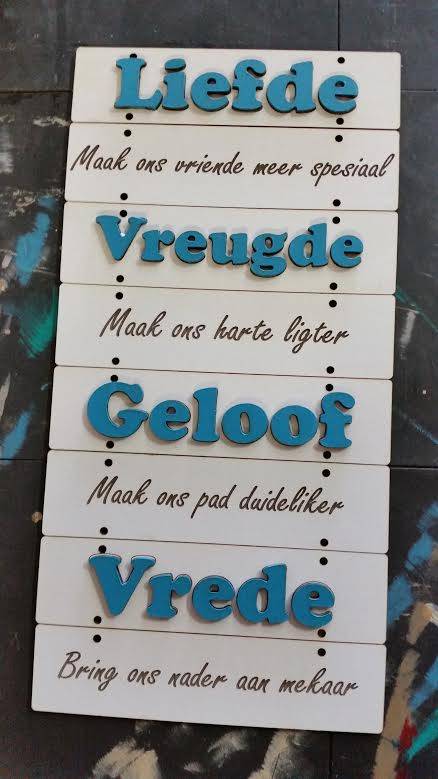 Liefde
Maak ons vriende meer spesiaal
Vreugde
Maak ons harte ligter
Geloof
Maak ons pad duideliker
Vrede
Bring ons nader aan mekaar